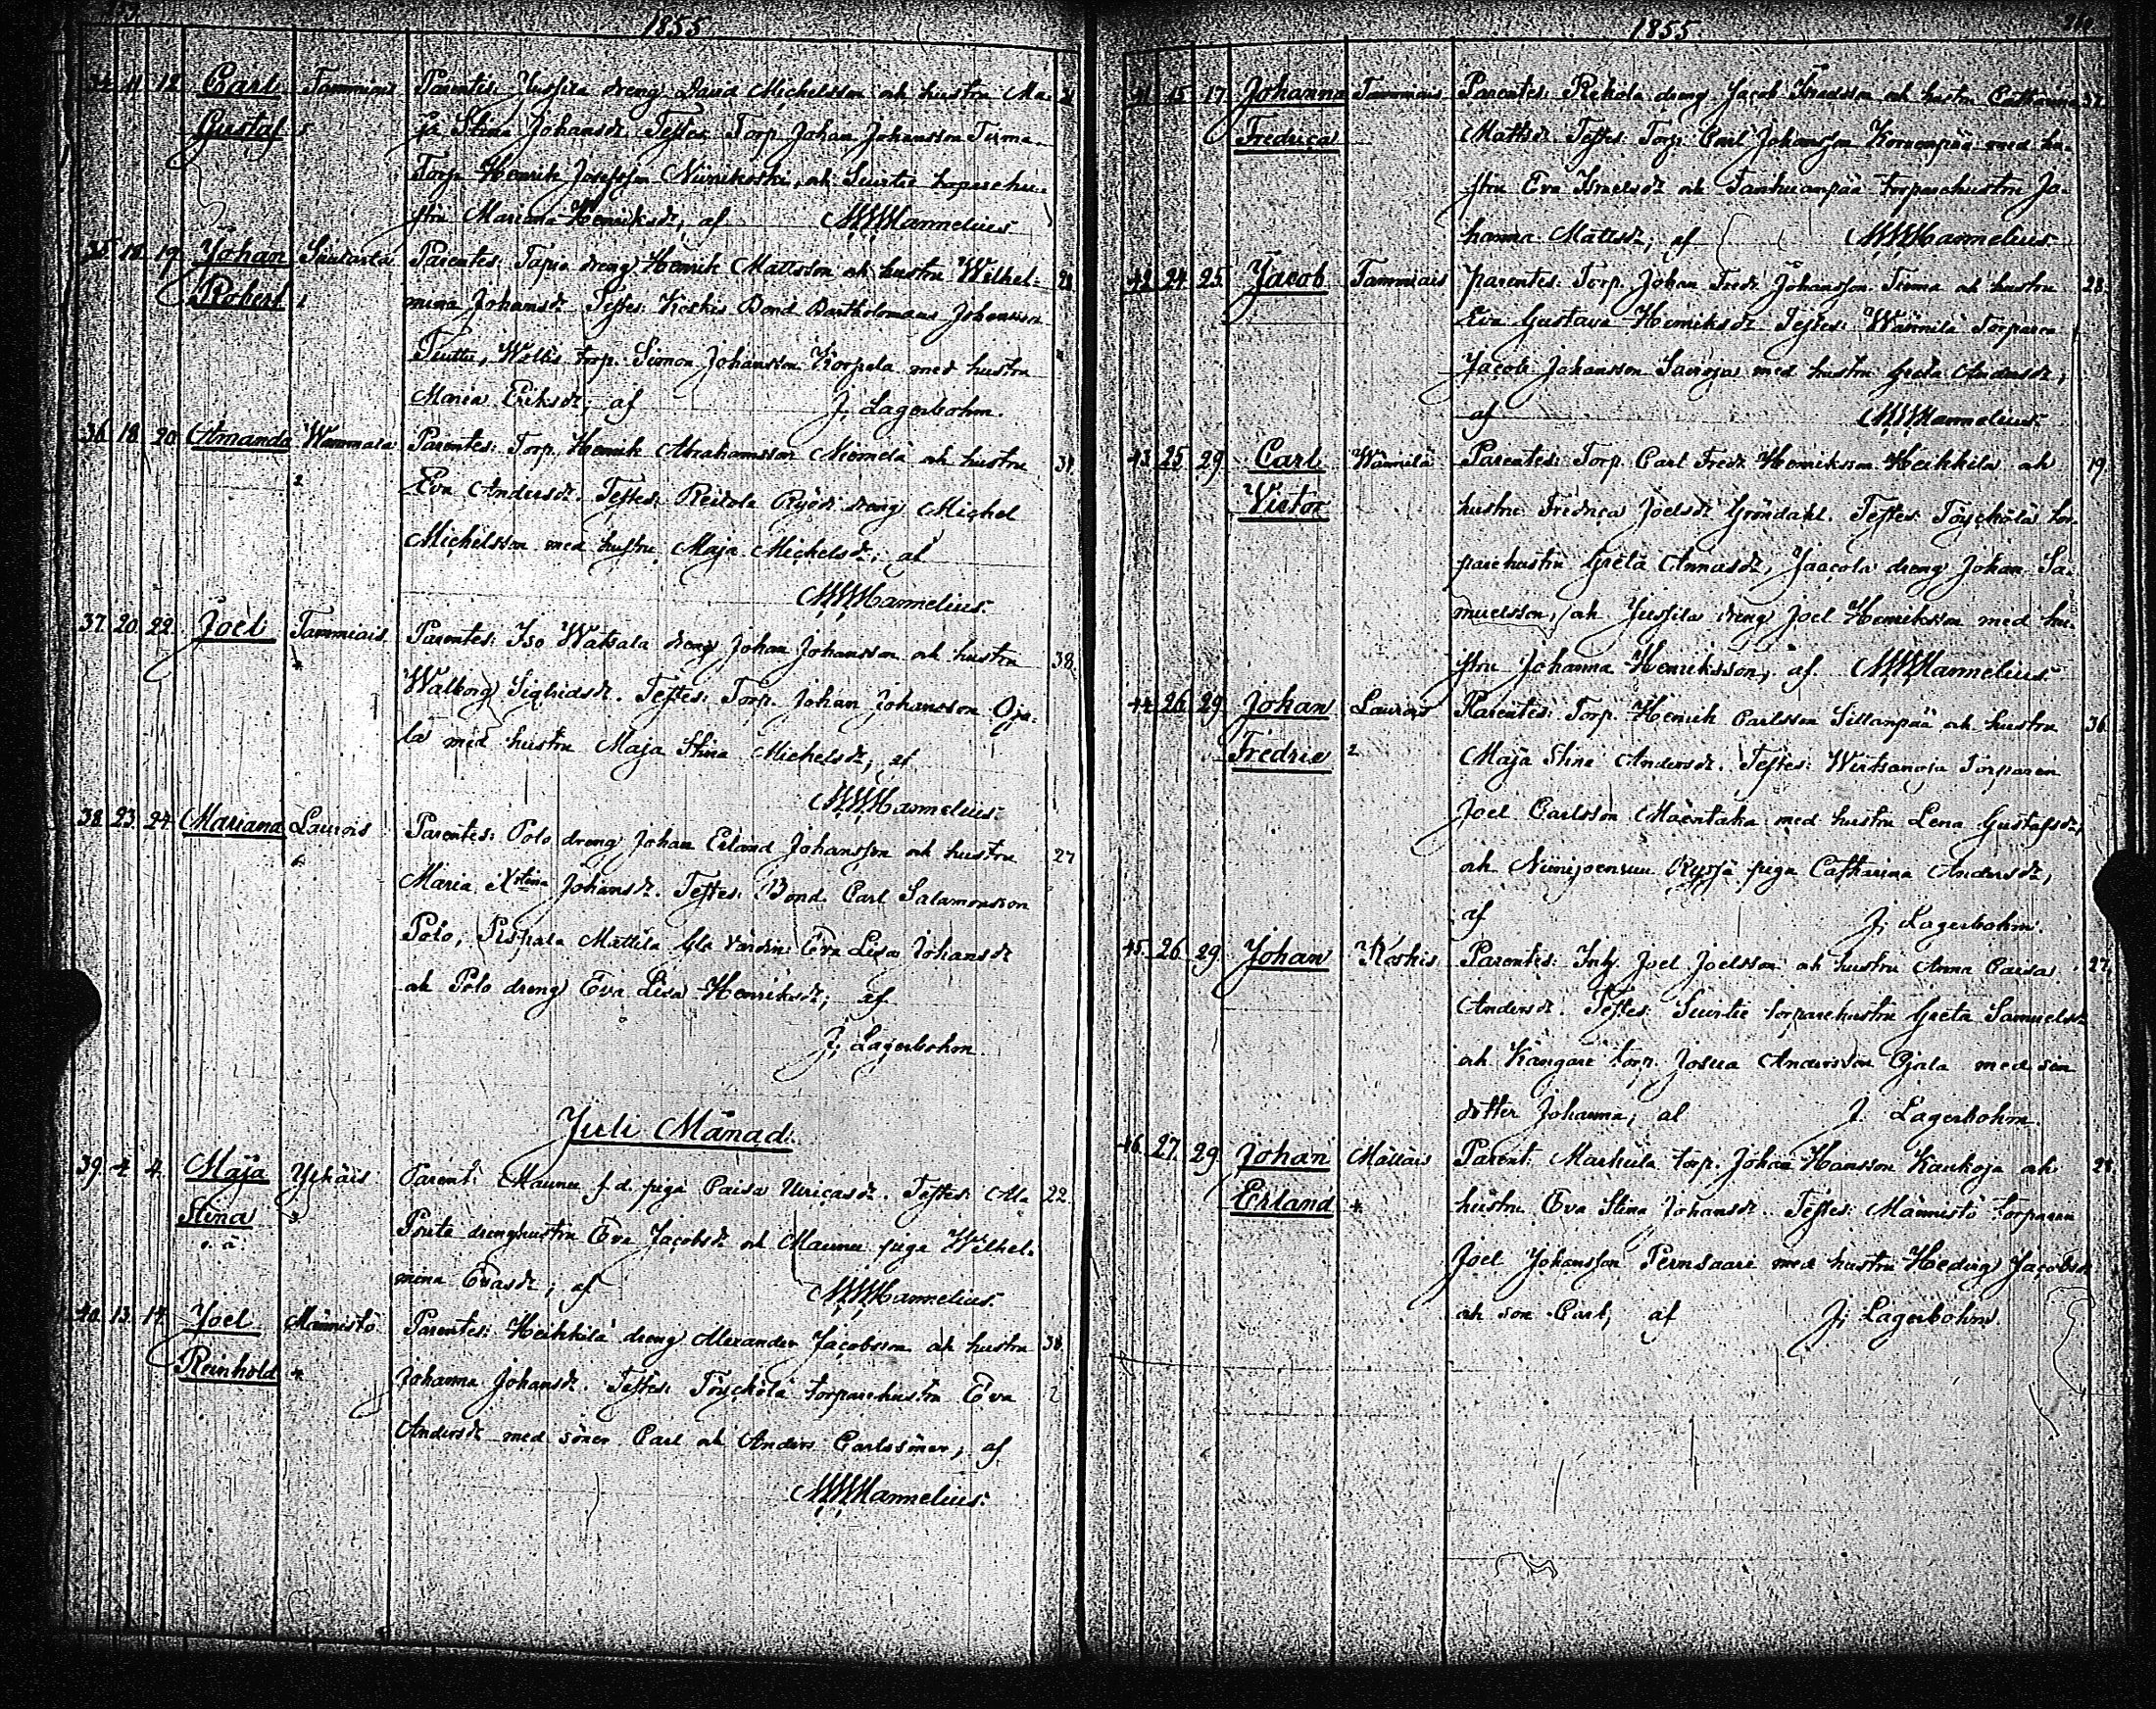 1855
34. 11. 12. Carl Tammiais Parentes: Jussila dreng David Michelsson och hustru Ma-
Gustaf 5 ja Stina Johansdr. Testes: Torp. Johan Johansson Tuma
Torp. Henrik Josefsson Niinikoski, och Suutie torparehu-
stru Mariana Henriksdr, af Hannelius
35. 18. 19. Johan Parentes: Tapio dreng Henrik Mattsson och hustru Wilhel- 28
Robert 1 mina Johansdr. Testes: Koskis Bond. Bartholomæus Johansson
torp. Simon Johansson Korpela med hustru
Maria Eriksdr; af J. Lagerbohm.
36. 18. 20. Amanda Wammala Parentes: Torp. Henrik Abrahamsson Niemelä och hustru 34
2 Eva Andersdr. Testes: dreng Michel
Michelsson med hustru Maja Michelsdr; af
Hannelius.
37. 20. 22. Joel Tammiais Parentes: Iso Watsala dreng Johan Johansson och hustru 38.
4 Walborg Sigfridsdr. Testes: Torp. Johan Johansson Oja-
la med hustru Maja Stina Michelsdr; af
Hannelius.
38. 23. 24. Mariana Laurois Parentes: Polo dreng Johan Erland Johansson och hustru 27
6 Maria Xstina Johansdr. Testes: Bond. Carl Salamonsson
Polo, Pispala Mattila Gla värdin: Eva Lisa Johansdr
och Polo dreng Eva Lisa Henriksdr; af
J; Lagerbohm
Juli Månad.
39. 4. 4. Maja Yrhais Parent: Maunu f.d. piga Caisa Ulricasdr. Testes: 22.
Stina 3. drenghustru Eva Jacobsdr och Maunu piga Wilhel-
o. ä. mina Evasdr; af Hannelius.
40. 13. 14. Joel Männistö Parentes: Heikkilä dreng Alexander Jacobsson och hustru 38.
Reinhold 4. Johanna Johansdr. Testes: Töyckölä torparehustru Eva
Andersdr med söner Carl och Anders Carlssöner, af
Hannelius.
1855
41. 15. 17. Johanna Tammiais Parentes: Rekola dreng Jacob och hustru Catharina 37.
Fredrica Mattsdr. Testes: Torp. Carl Johansson Korvenpää med hu-
stru Eva Israelsdr och Tanhuanpää torparehustru Jo-
hanna Mattsdr; af Hannelius
42. 24. 25. Jacob Tammiais Parentes: Torp. Johan Fredr. Johansson Tuma och hustru 28.
Eva Gustava Henriksdr. Testes: Wännilä Torparen
Jacob Johansson Savioja med hustru Greta Andersdr,
af Hannelius.
43. 25. 29. Carl Wännilä Parentes: Torp. Carl Fredr. Henriksson Heikkilä och 19.
Victor hustru Fredrica Joelsdr Gröndahl. Testes: Töyckölä tor-
parehustru Greta Annasdr, Jaacola dreng Johan Sa-
muelsson, och Jussila dreng Joel Henriksson med hu-
stru Johanna Henriksson, af Hannelius
44. 26. 29. Johan Laurois Parentes: Torp. Henrik Carlsson Sillanpää och hustru 36
Fredric 2 Maja Stina Andersdr. Testes: Wirtsanoja Torparen
Joel Carlsson Mäentaka med hustru Lena Gustafsdr,
och Niinijoensuu piga Catharina Andersdr,
af J; Lagerbohm.
45. 26. 29. Johan Koskis Parentes: Inh. Joel Joelsson och hustru Anna Caisa 27
Andersdr. Testes: Suutie torparehustru Greta Samuelsdr
och Kangare torp. Josua Andersson Ojala med sin
dotter Johanna; af J. Lagerbohm.
46. 27. 29. Johan Mällais Parent: Markula torp. Johan Hansson Kaukoja och 28.
Erland 4. hustru Eva Stina Johansdr. Testes: Männistö Torparen
Joel Johansson Pernsaari med hustru Hedvig Jacobsdr
och son Carl; af J; Lagerbohm.